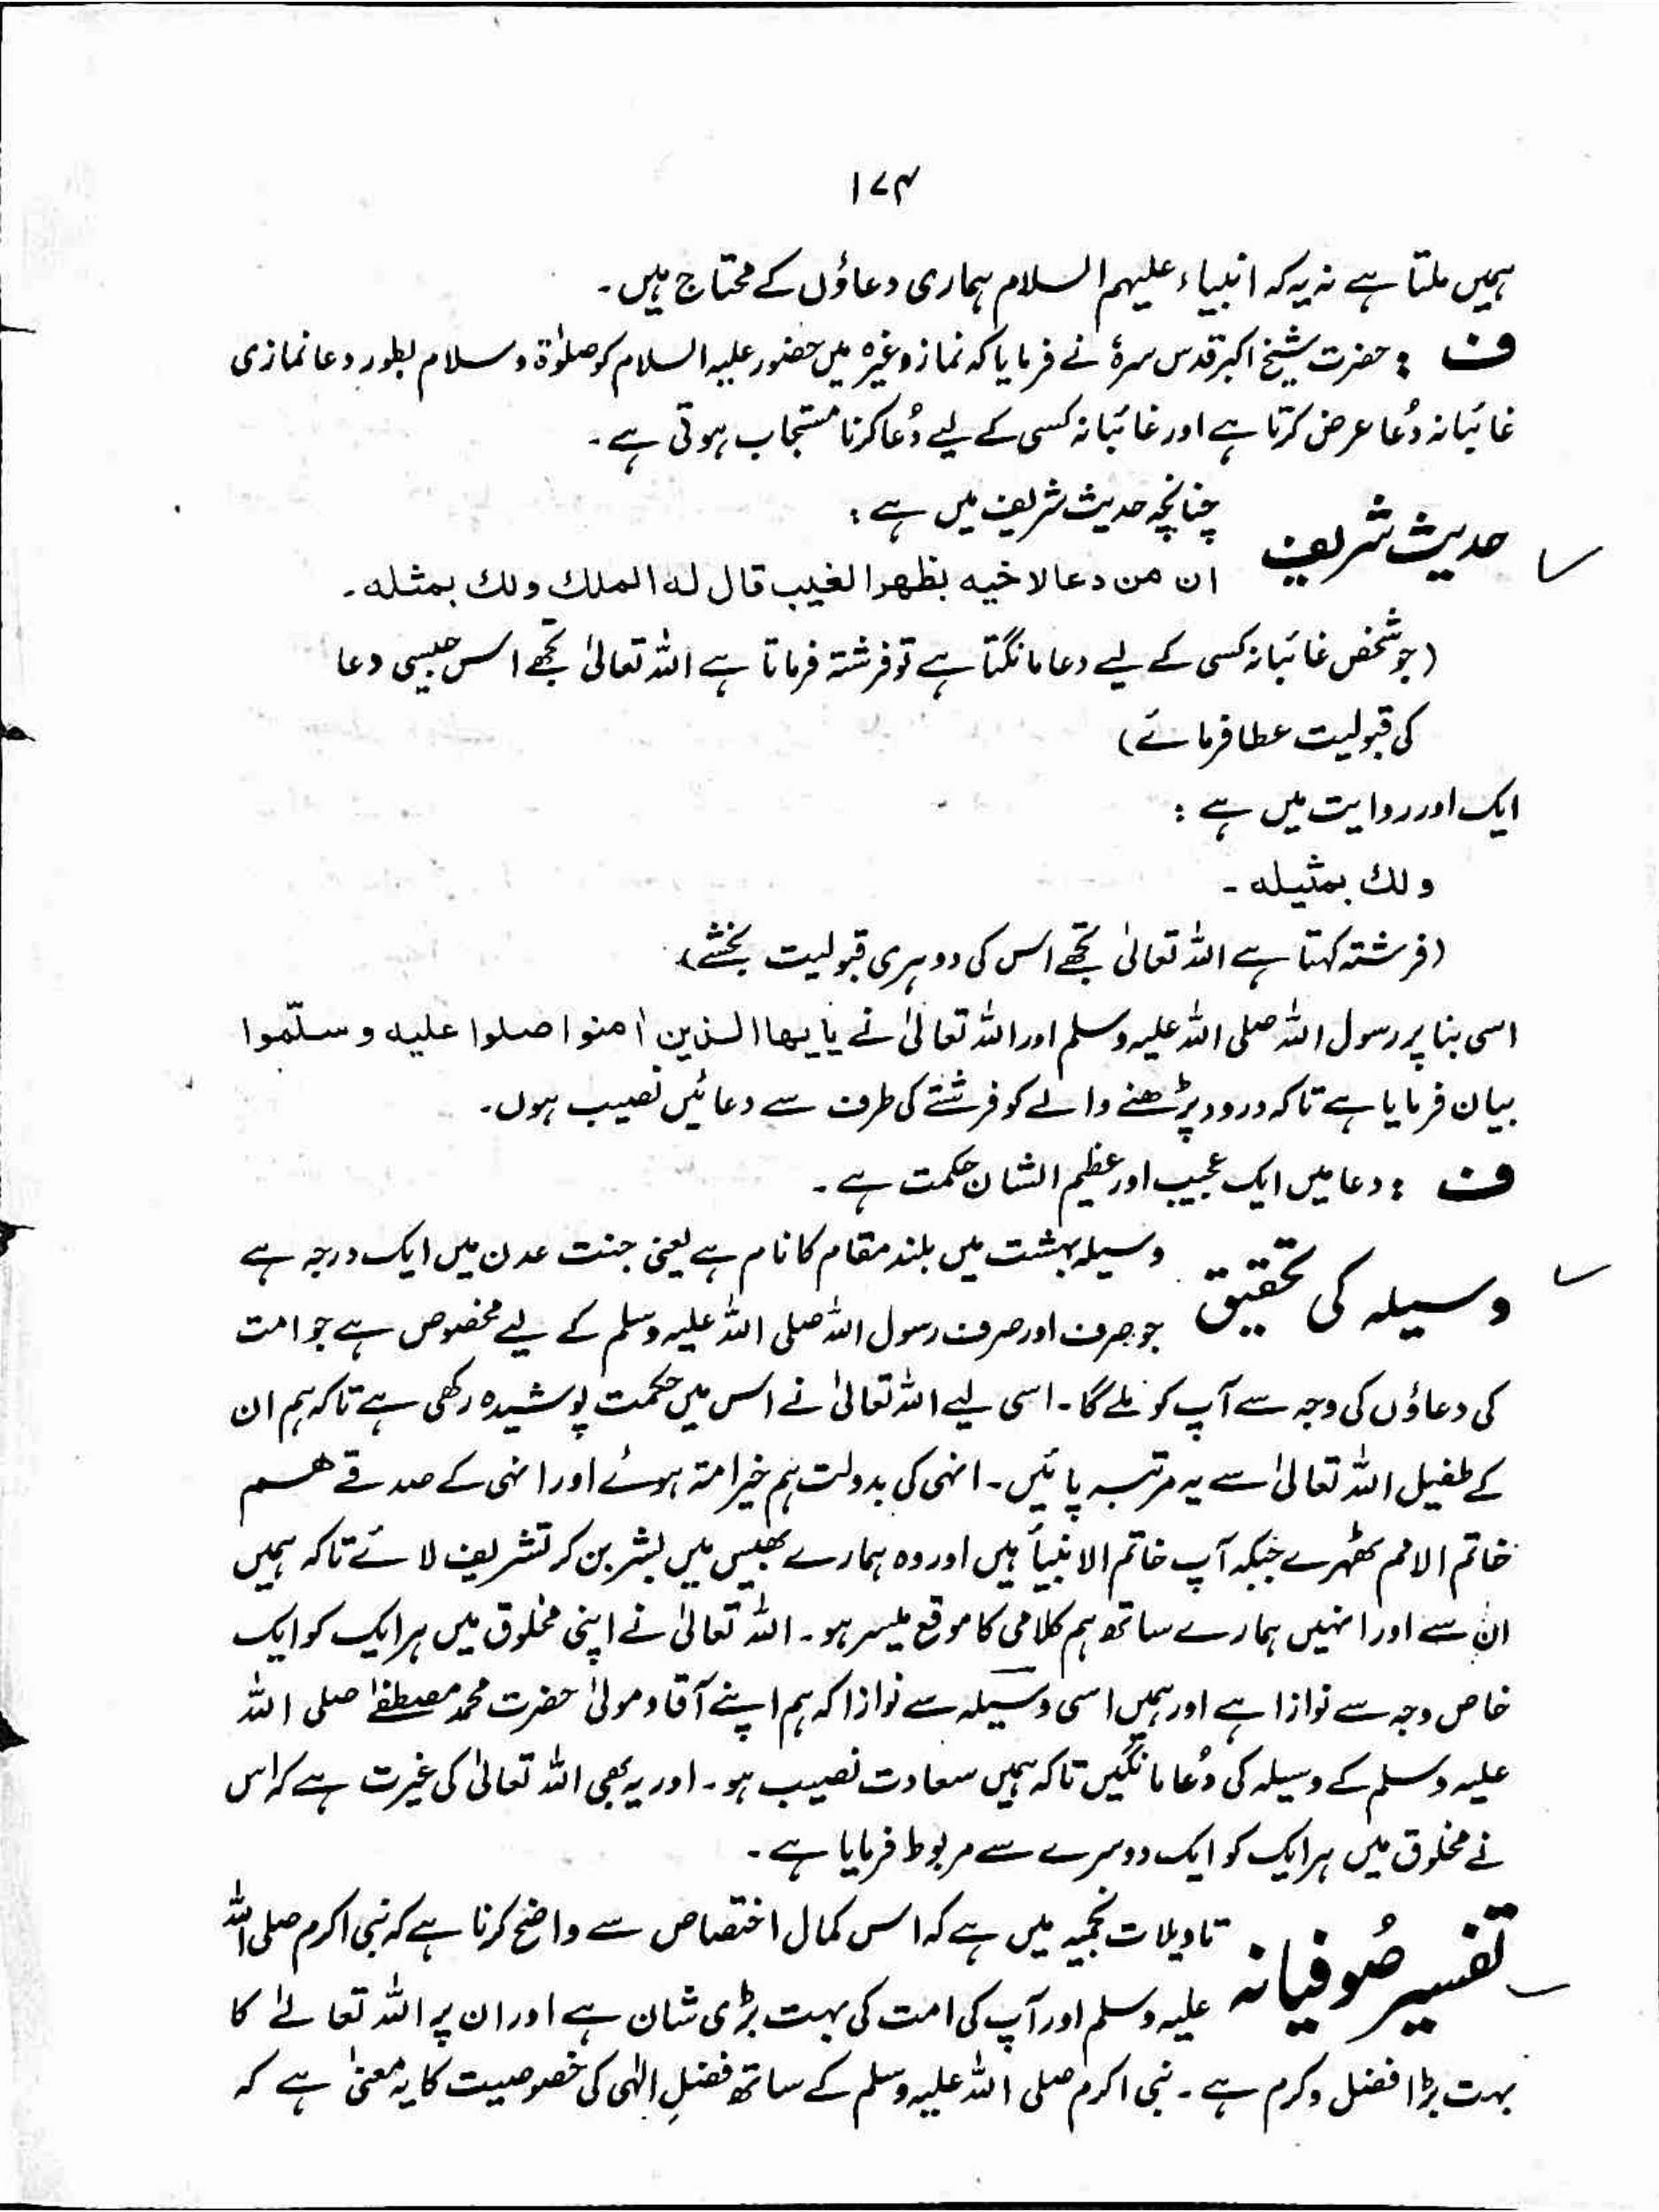 ۱۷۴
ہمیں ملتا ہے نہ یہ کہ انبیاء علیہم السلام ہماری دعاؤں کے محتاج ہیں۔
ف : حضرت شیخ اکبر قدس سرہٗ نے فرمایا کہ نماز وغیرہ میں حضور علیہ السلام کو صلوٰۃ و سلام بطور دعا نمازی
غائبانہ دُعا عرض کرتا ہے اور غائبانہ کسی کے لیے دُعا کرنا مستجاب ہوتی ہے۔
حدیث شریف چنانچہ حدیث شریف میں ہے :
ان من دعا لاخیه بظهر الغیب قال له الملك ولك بمثله۔
(جو شخص غائبانہ کسی کے لیے دعا مانگتا ہے تو فرشتہ فرماتا ہے اللہ تعالیٰ تجھے اس جیسی دعا
کی قبولیت عطا فرمائے)
ایک اور روایت میں ہے :
ولك بمثیله۔
(فرشتہ کہتا ہے اللہ تعالیٰ تجھے اس کی دوہری قبولیت بخشے)
اسی بنا پر رسول اللہ صلی اللہ علیہ وسلم اور اللہ تعالیٰ نے یٰایها الذین اٰمنوا صلوا علیه و سلّموا
بیان فرمایا ہے تاکہ درود پڑھنے والے کو فرشتے کی طرف سے دعائیں نصیب ہوں۔
ف : دعا میں ایک عجیب اور عظیم الشان حکمت ہے۔
وسیلہ کی تحقیق وسیلہ بہشت میں بلند مقام کا نام ہے یعنی جنت عدن میں ایک درجہ ہے
جو صرف اور صرف رسول اللہ صلی اللہ علیہ وسلم کے لیے مخصوص ہے جو امت
کی دعاؤں کی وجہ سے آپ کو ملے گا۔ اسی لیے اللہ تعالیٰ نے اس میں حکمت پوشیدہ رکھی ہے تاکہ ہم ان
کے طفیل اللہ تعالیٰ سے یہ مرتبہ پائیں۔ انہی کی بدولت ہم خیر امۃ ہوئے اور انہی کے صدقے ھم
خاتم الامم ٹھہرے جبکہ آپ خاتم الانبیأ ہیں اور وہ ہمارے بھیس میں بشر بن کر تشریف لائے تاکہ ہمیں
ان سے اور انہیں ہمارے ساتھ ہم کلامی کا موقع میسر ہو۔ اللہ تعالیٰ نے اپنی مخلوق میں ہر ایک کو ایک
خاص وجہ سے نوازا ہے اور ہمیں اسی وسیلہ سے نوازا کہ ہم اپنے آقا و مولیٰ حضرت محمد مصطفےٰ صلی اللہ
علیہ وسلم کے وسیلہ کی دُعا مانگیں تاکہ ہمیں سعادت نصیب ہو۔ اور یہ بھی اللہ تعالیٰ کی غیرت ہے کہ اس
نے مخلوق میں ہر ایک کو ایک دوسرے سے مربوط فرمایا ہے۔
تفسیر صُوفیانہ تاویلات نجمیہ میں ہے کہ اس کمال اختصاص سے واضح کرنا ہے کہ نبی اکرم صلی اللہ
علیہ وسلم اور آپ کی امت کی بہت بڑی شان ہے اور ان پر اللہ تعالےٰ کا
بہت بڑا فضل و کرم ہے۔ نبی اکرم صلی اللہ علیہ وسلم کے ساتھ فضلِ الٰہی کی خصوصیت کا یہ معنیٰ ہے کہ